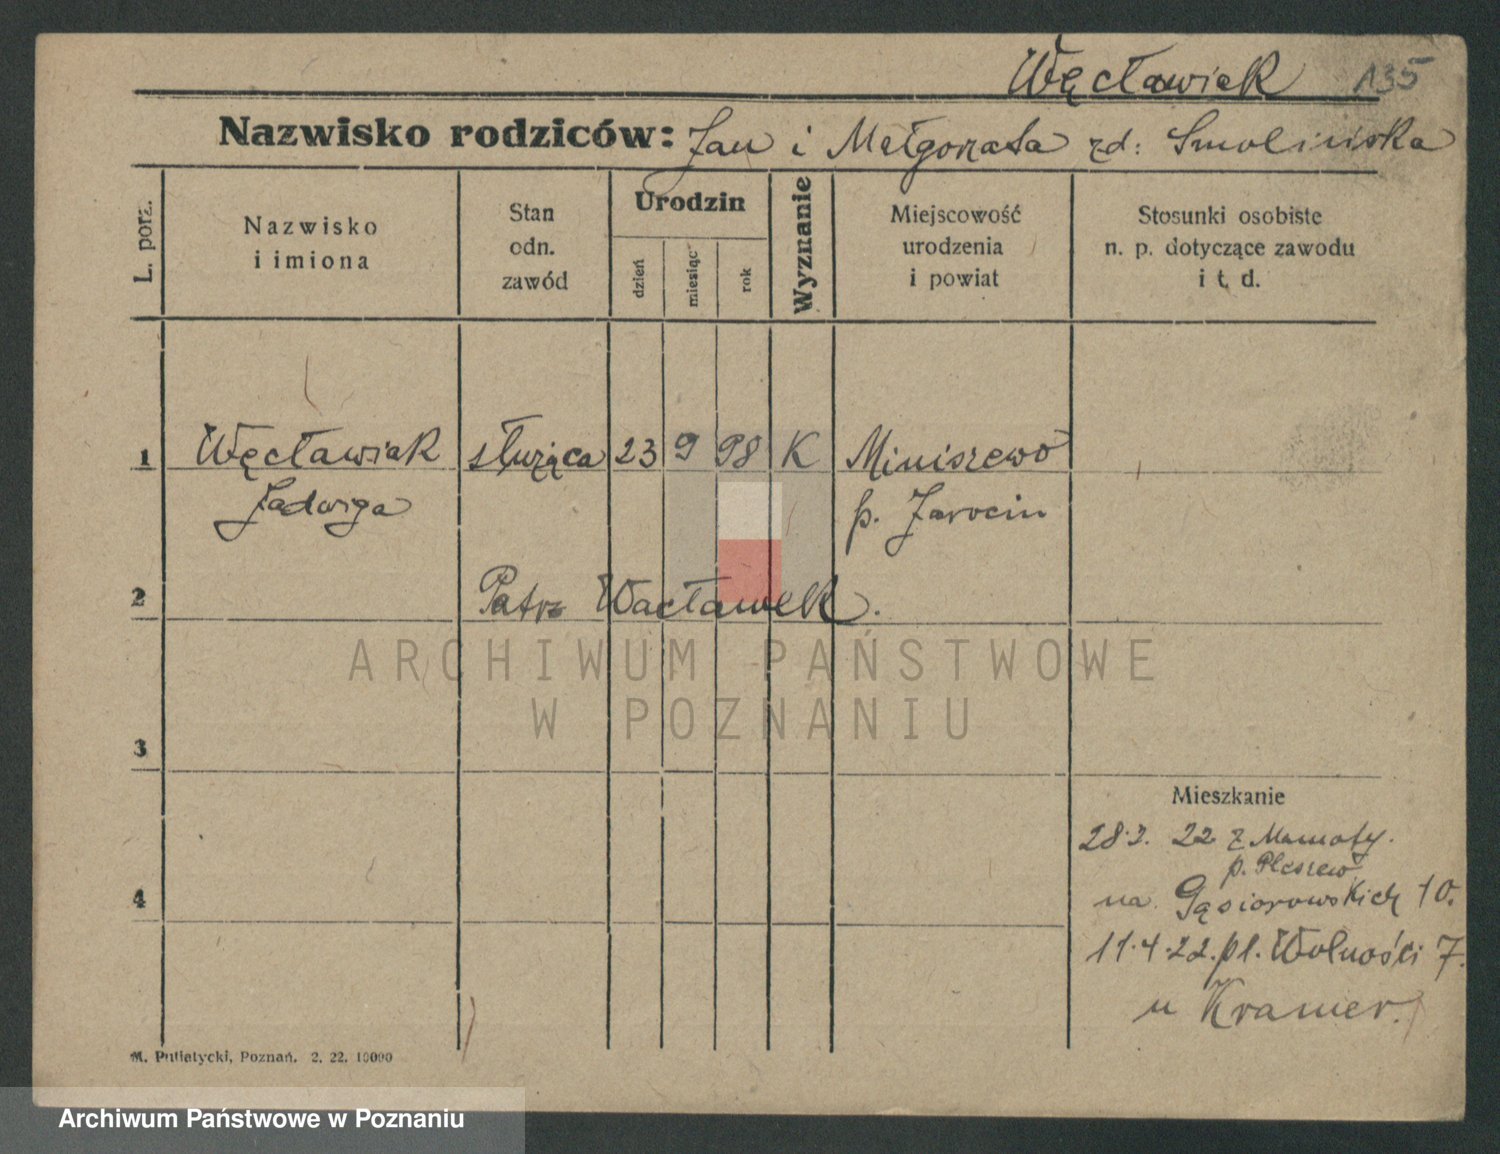 Węcławiak 135
Nazwisko rodziców: Jan i Małgorzata zd: Smolińska
L. porz.
Nazwisko
i imiona
Stan
odn.
zawód
Urodzin
dzień
miesiąc
rok
Wyznanie
Miejscowość
urodzenia
i powiat
Stosunki osobiste
n. p. dotyczące zawodu
i t. d.
1 Węcławiak służąca 23 9 98 K Miniszewo
Jadwiga p. Jarocin
2 Patrz Wacławek.
ARCHIWUM PAŃSTWOWE
W POZNANIU
3
Mieszkanie
28.2. 22 z Mamoty.
p. Pleszew
4
na Gąsiorowskich 10.
11.4.22. pl. Wolności 7.
u Kramer.
M. Putiatycki, Poznań. 2. 22. 10000
Archiwum Państwowe w Poznaniu